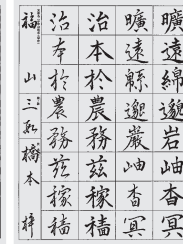 曠遠綿邈岩岫杳冥
曠遠緜邈巌岫杳冥
治本於農務茲稼穡
治夲於農務茲稼穡
福山 橋本